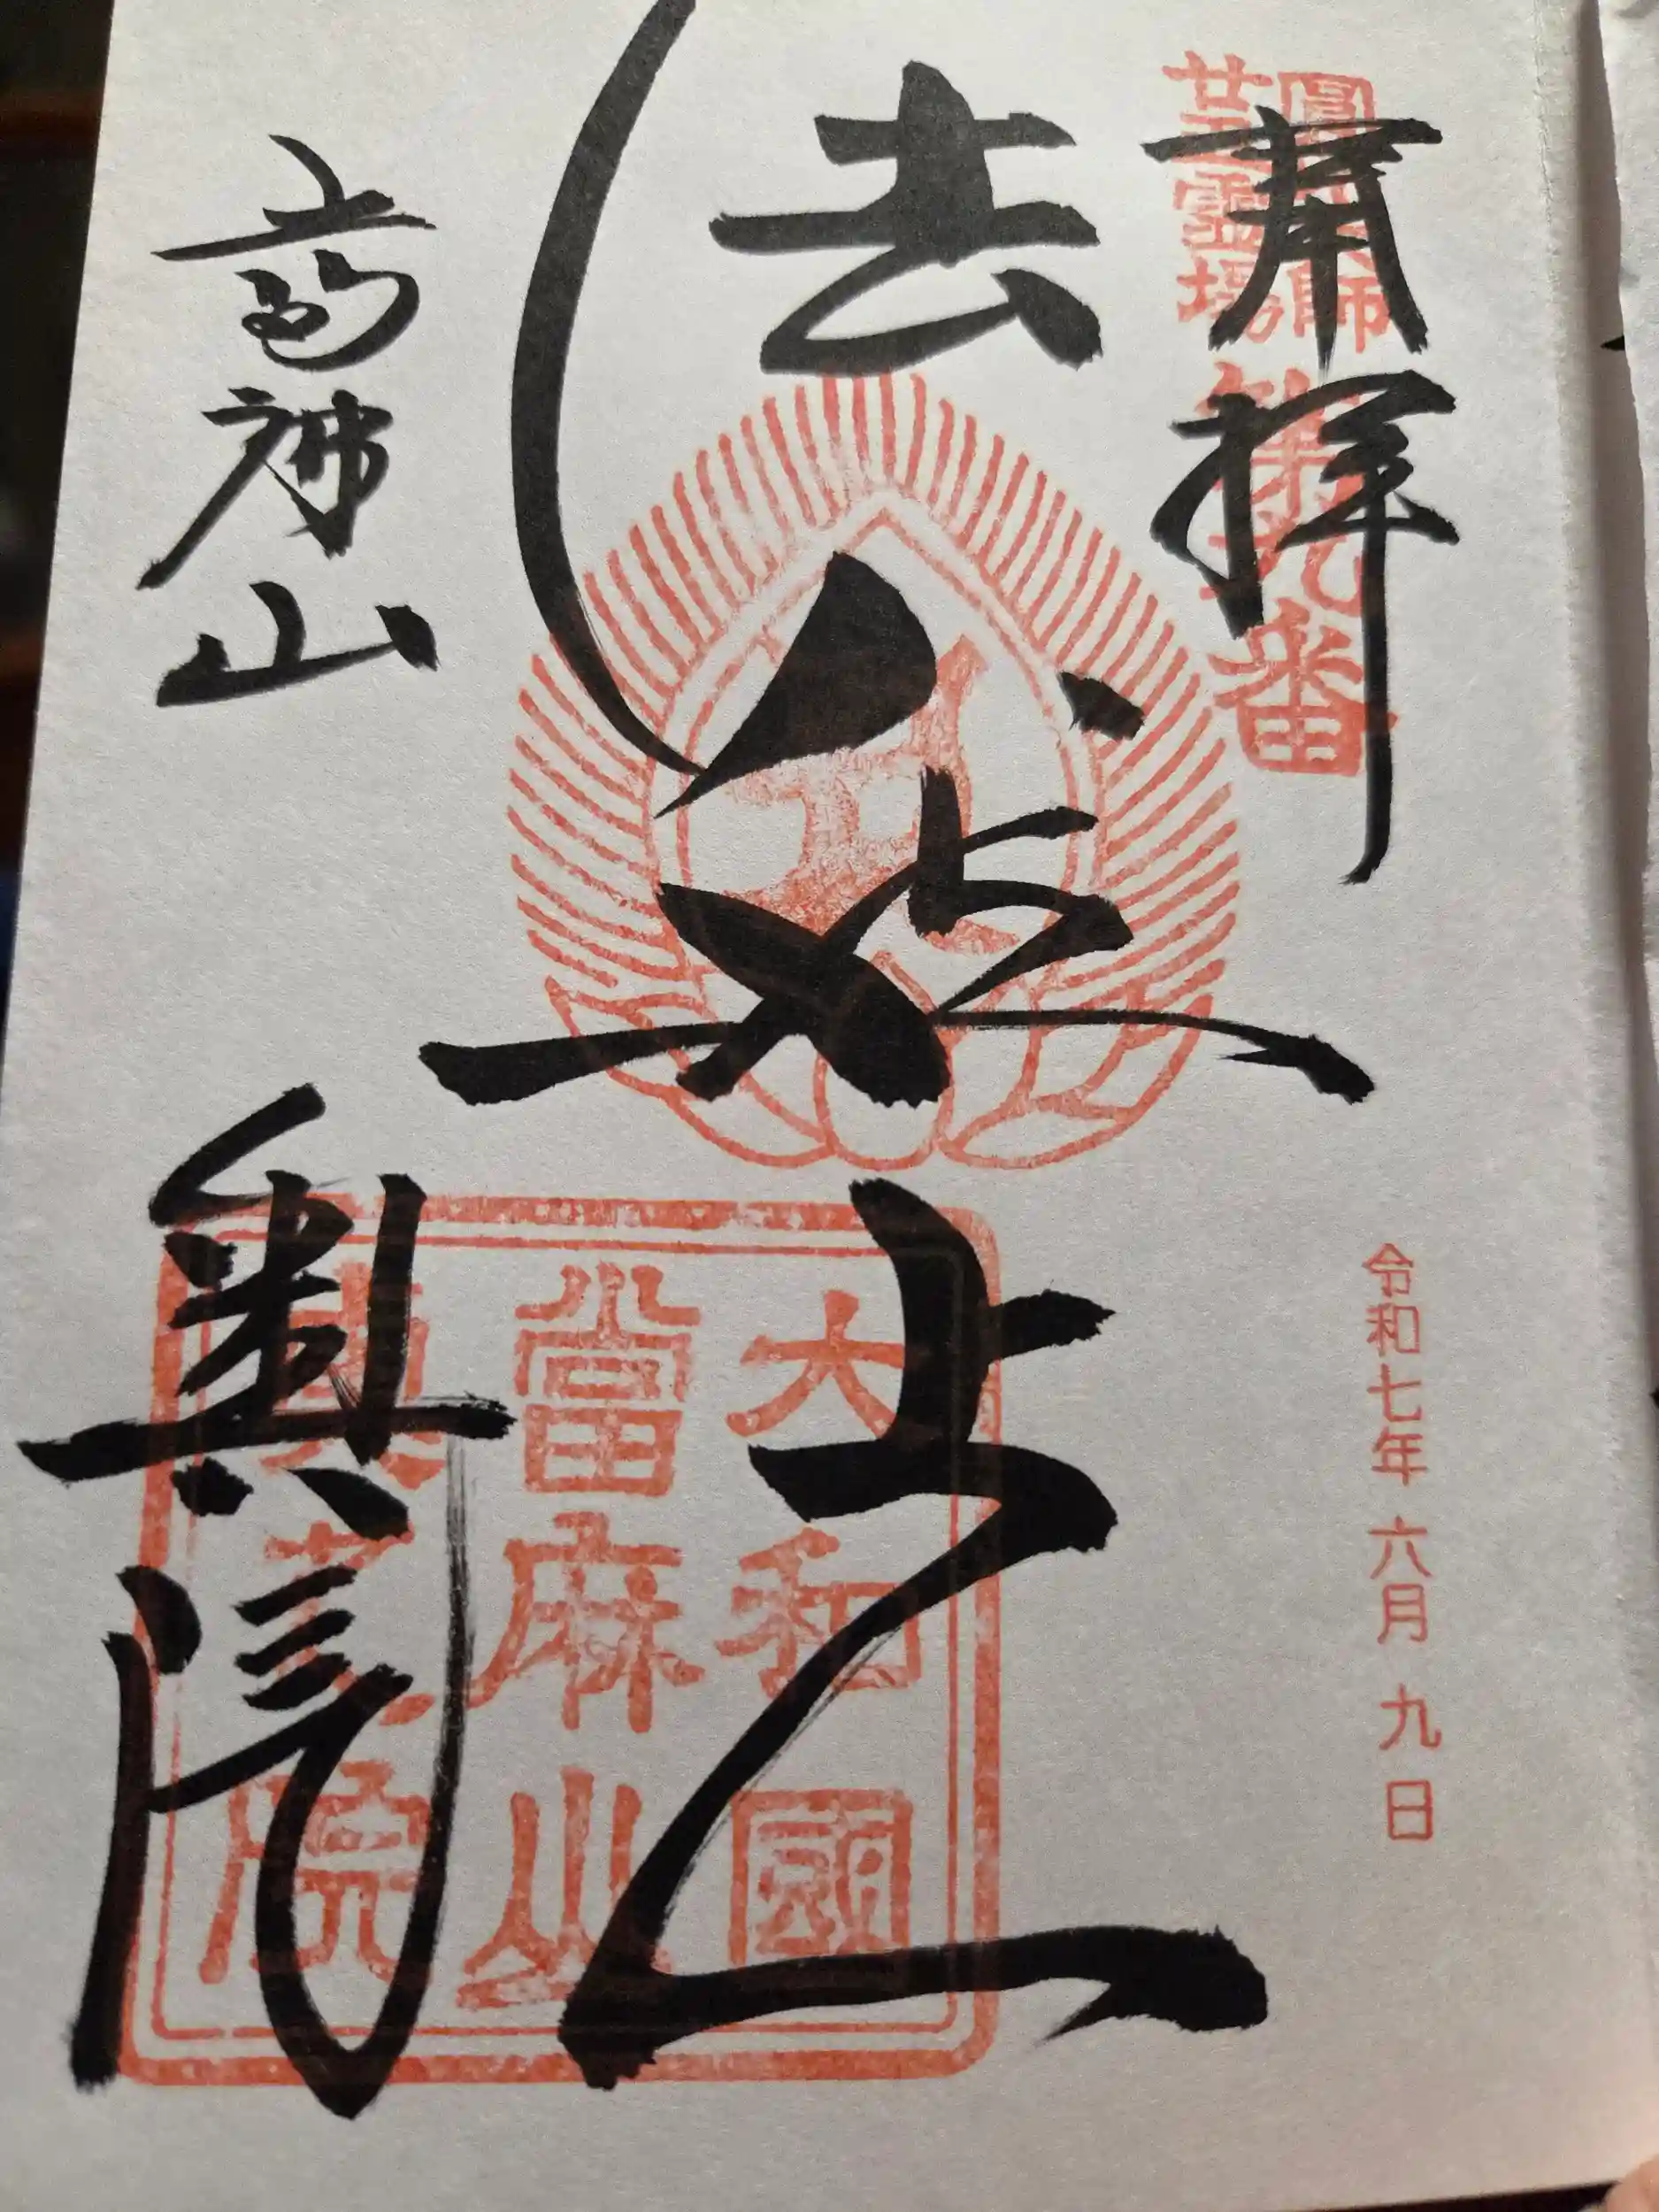 奉拝
圓光大師
廿五霊場
第九番
令和七年 六月 九日
法然上人
大和國
當麻山
奥之院
當麻山
奥院